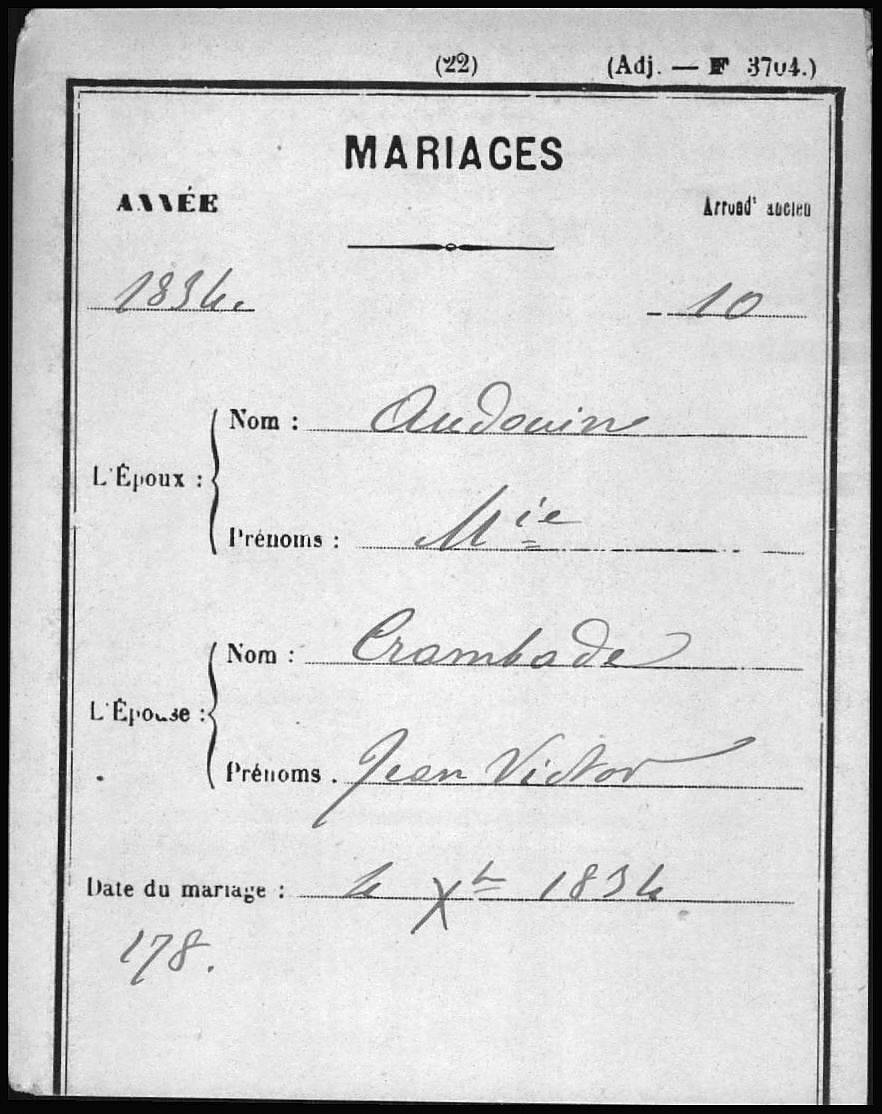 (22) (Adj. — F 3704.)
MARIAGES
ANNÉE Arrondt ancien
1834. 10
L'Époux :
Nom : Audouin
Prénoms : Mie
L'Épouse :
Nom : Crambade
Prénoms . Jean Victor
Date du mariage : 4 Xbre 1834
178.